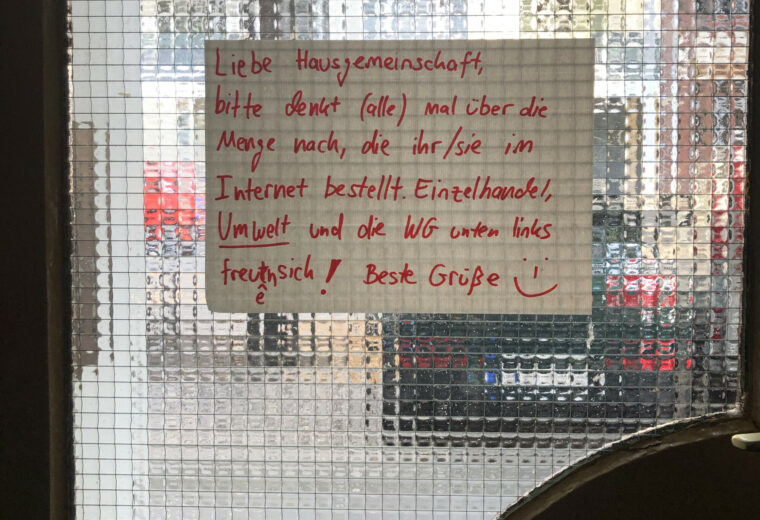 Liebe Hausgemeinschaft,
bitte denkt (alle) mal über die
Menge nach, die ihr/sie im
Internet bestellt. Einzelhandel,
Umwelt und die WG unten links
freuen sich! Beste Grüße :)